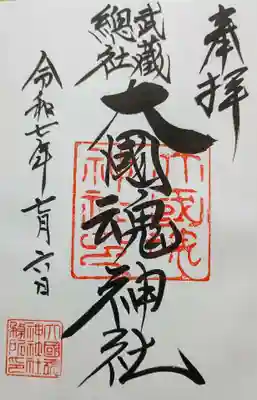 奉拝
武藏
總社
大國魂神社
令和七年七月六日
大國魂
神社印
大國魂
神社社
務所印